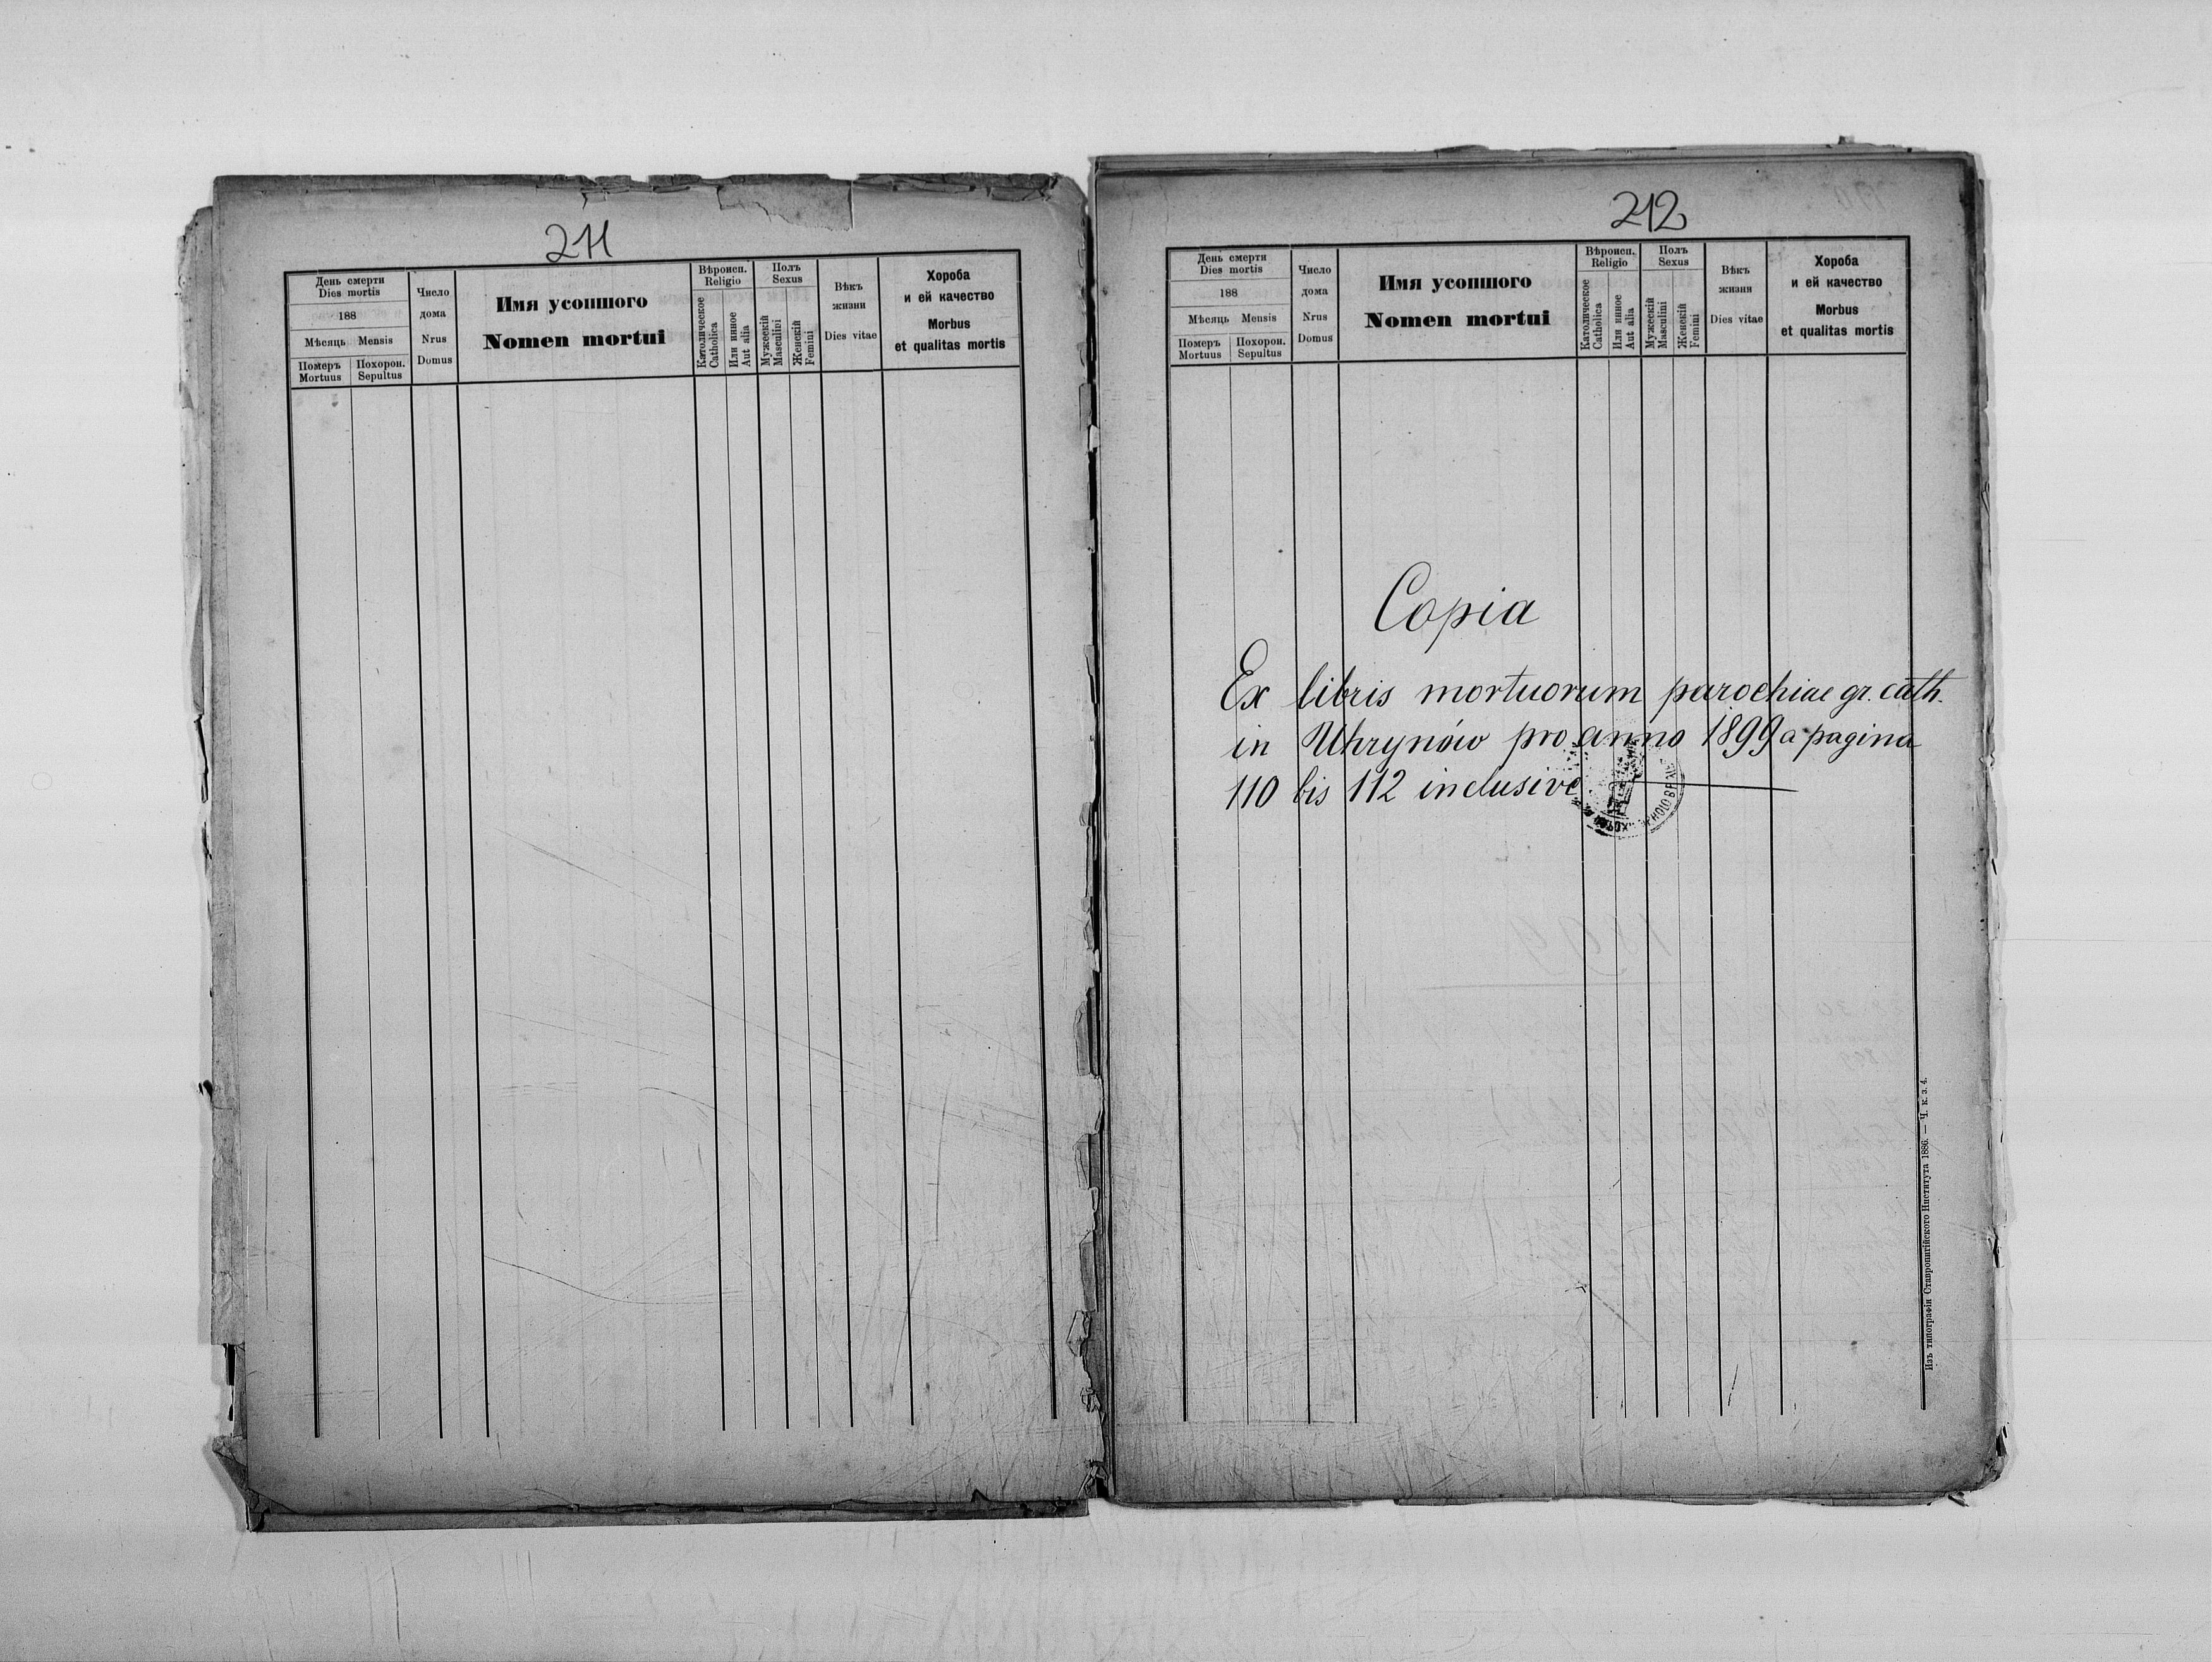 211
День смерти
Dies mortis
188
Мѣсяць Mensis
Померъ
Mortuus
Похорон.
Sepultus
Число
дома
Nrus
Domus
Имя усопшого
Nomen mortui
Вѣроисп.
Religio
Католическое
Catholica
Или инное
Aut alia
Полъ
Sexus
Мужескій
Masculini
Женскій
Femini
Вѣкъ
жизни
Dies vitae
Хороба
и ей качество
Morbus
et qualitas mortis
212
День смерти
Dies mortis
188
Мѣсяць Mensis
Померъ
Mortuus
Похорон.
Sepultus
Число
дома
Nrus
Domus
Имя усопшого
Nomen mortui
Вѣроисп.
Religio
Католическое
Catholica
Или инное
Aut alia
Полъ
Sexus
Мужескій
Masculini
Женскій
Femini
Вѣкъ
жизни
Dies vitae
Хороба
и ей качество
Morbus
et qualitas mortis
Copia
Ex libris mortuorum parochiae gr. cath.
in Uhrynów pro anno 1899 a pagina
110 bis 112 inclusive
Изъ типографіи Ставропигійского Института 1886. — Ч. к. з. 4.